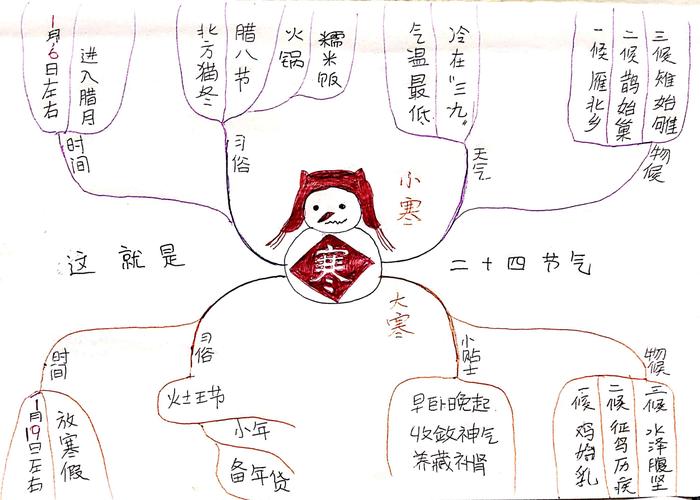 1月6日左右
进入腊月
时间
北方猫冬
腊八节
火锅
糯米饭
习俗
气温最低
冷在"三九"
天气
一候雁北乡
二候鹊始巢
三候雉始雊
物候
小寒
这就是
寒
二十四节气
大寒
时间
1月19日左右
放寒假
习俗
小年
备年货
小贴士
早卧晚起
收敛神气
养藏补肾
物候
一候鸡始乳
二候征鸟厉疾
三候水泽腹坚